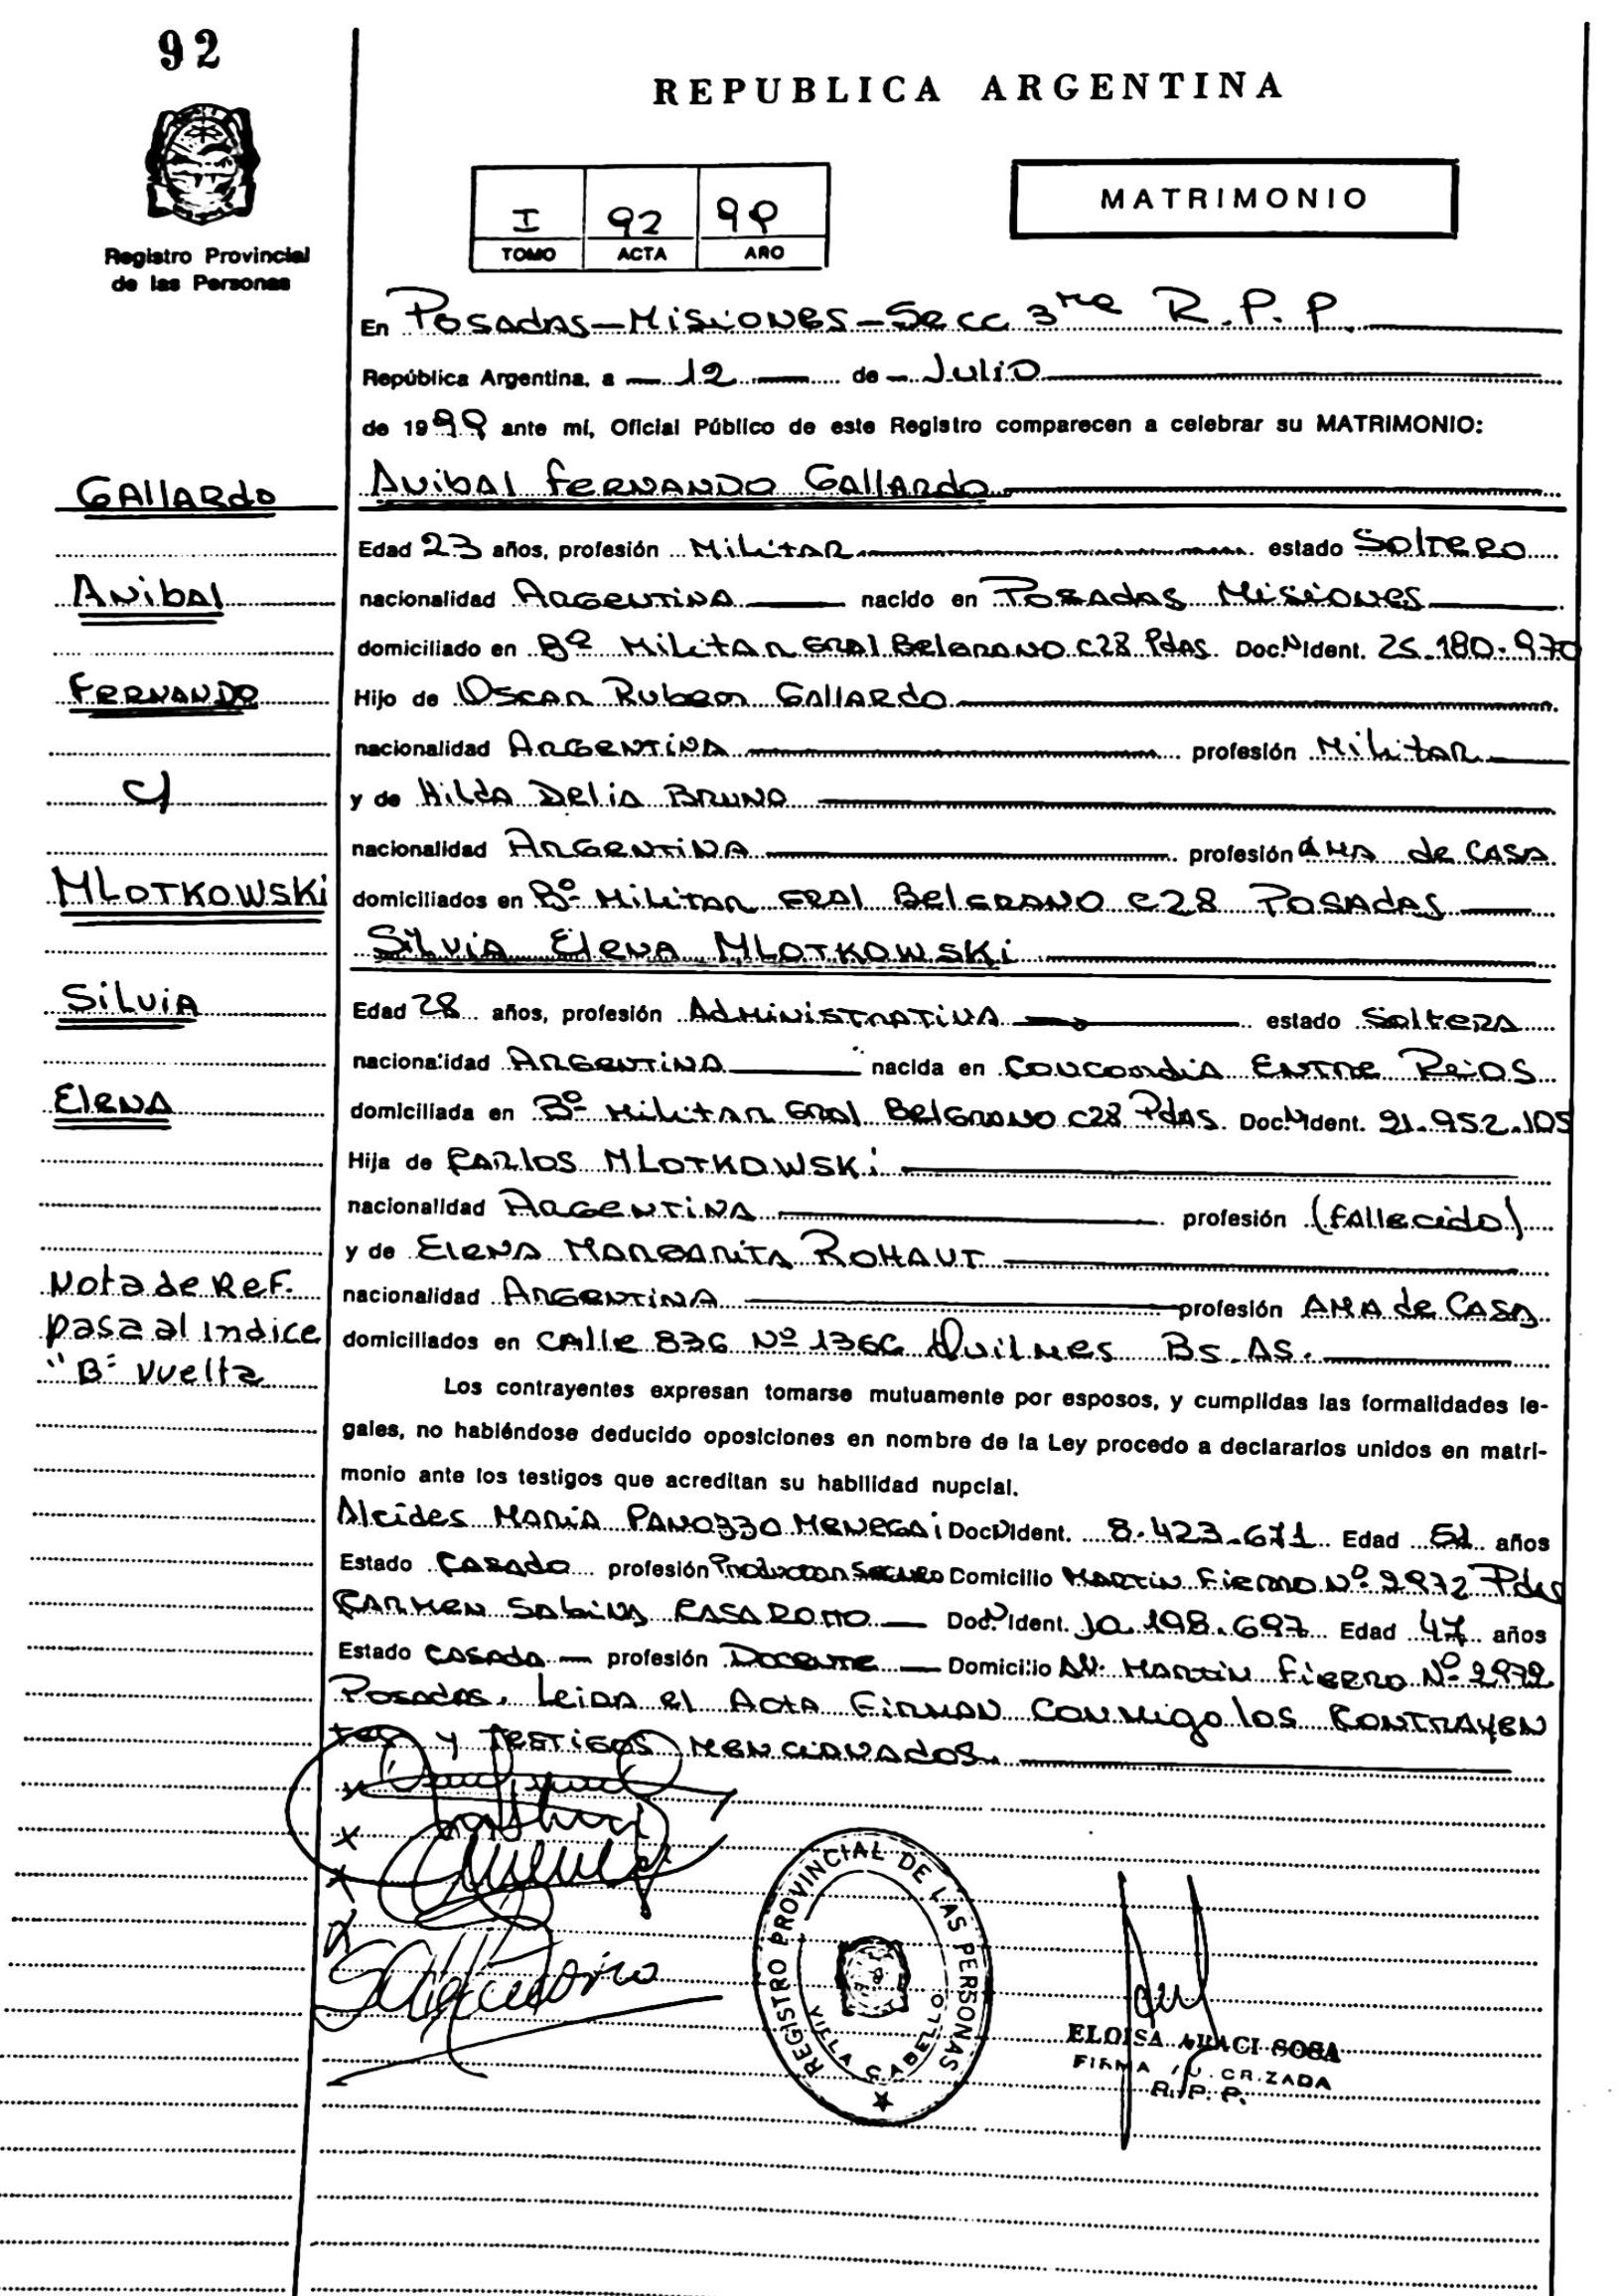 92
REPUBLICA ARGENTINA
MATRIMONIO
I 92 99
TOMO ACTA AÑO
Registro Provincial
de las Personas
En Posadas-Misiones-Secc 3ra R.P.P.
República Argentina, a 12 de Julio
de 1999 ante mí, Oficial Público de este Registro comparecen a celebrar su MATRIMONIO:
Gallardo
Anibal Fernando Gallardo
Edad 23 años, profesión Militar estado Soltero
Anibal
nacionalidad Argentina nacido en Posadas Misiones
domiciliado en Bº Militar Gral Belgrano C28 Pdas. Doc. N Ident. 25.180.970
Fernando
Hijo de Oscar Ruben Gallardo
nacionalidad Argentina profesión Militar
c/
y de Hilda Delia Bruno
nacionalidad Argentina profesión ama de casa
Mlotkowski
domiciliados en Bº Militar Gral Belgrano C28 Posadas
Silvia Elena Mlotkowski
Silvia
Edad 28 años, profesión Administrativa estado Soltera
nacionalidad Argentina nacida en Concordia Entre Rios
Elena
domiciliada en Bº Militar Gral Belgrano C28 Pdas. Doc. N Ident. 21.952.105
Hija de Carlos Mlotkowski
nacionalidad Argentina profesión (fallecido)
y de Elena Margarita Rohaut
Nota de Ref.
nacionalidad Argentina profesión Ama de Casa
pasa al indice
domiciliados en Calle 836 Nº 1366 Quilmes Bs. As.
"B" vuelta
Los contrayentes expresan tomarse mutuamente por esposos, y cumplidas las formalidades le-
gales, no habiéndose deducido oposiciones en nombre de la Ley procedo a declararlos unidos en matri-
monio ante los testigos que acreditan su habilidad nupcial.
Alcides Maria Panozzo Menegai Doc N Ident. 8.423.671 Edad 51 años
Estado Casado profesión Productor Seguro Domicilio Martin Fierro Nº 2972 Pdas
Carmen Sabina Casarotto Doc. N Ident. 10.198.697 Edad 47 años
Estado Casada profesión Docente Domicilio Av. Martin Fierro Nº 2972
Posadas. Leida el Acta Firman conmigo los contrayen
tes y testigos mencionados.
REGISTRO PROVINCIAL DE LAS PERSONAS
VILLA CABELLO
ELOISA ARACI SOSA
FIRMA AUTORIZADA
R. P. P.